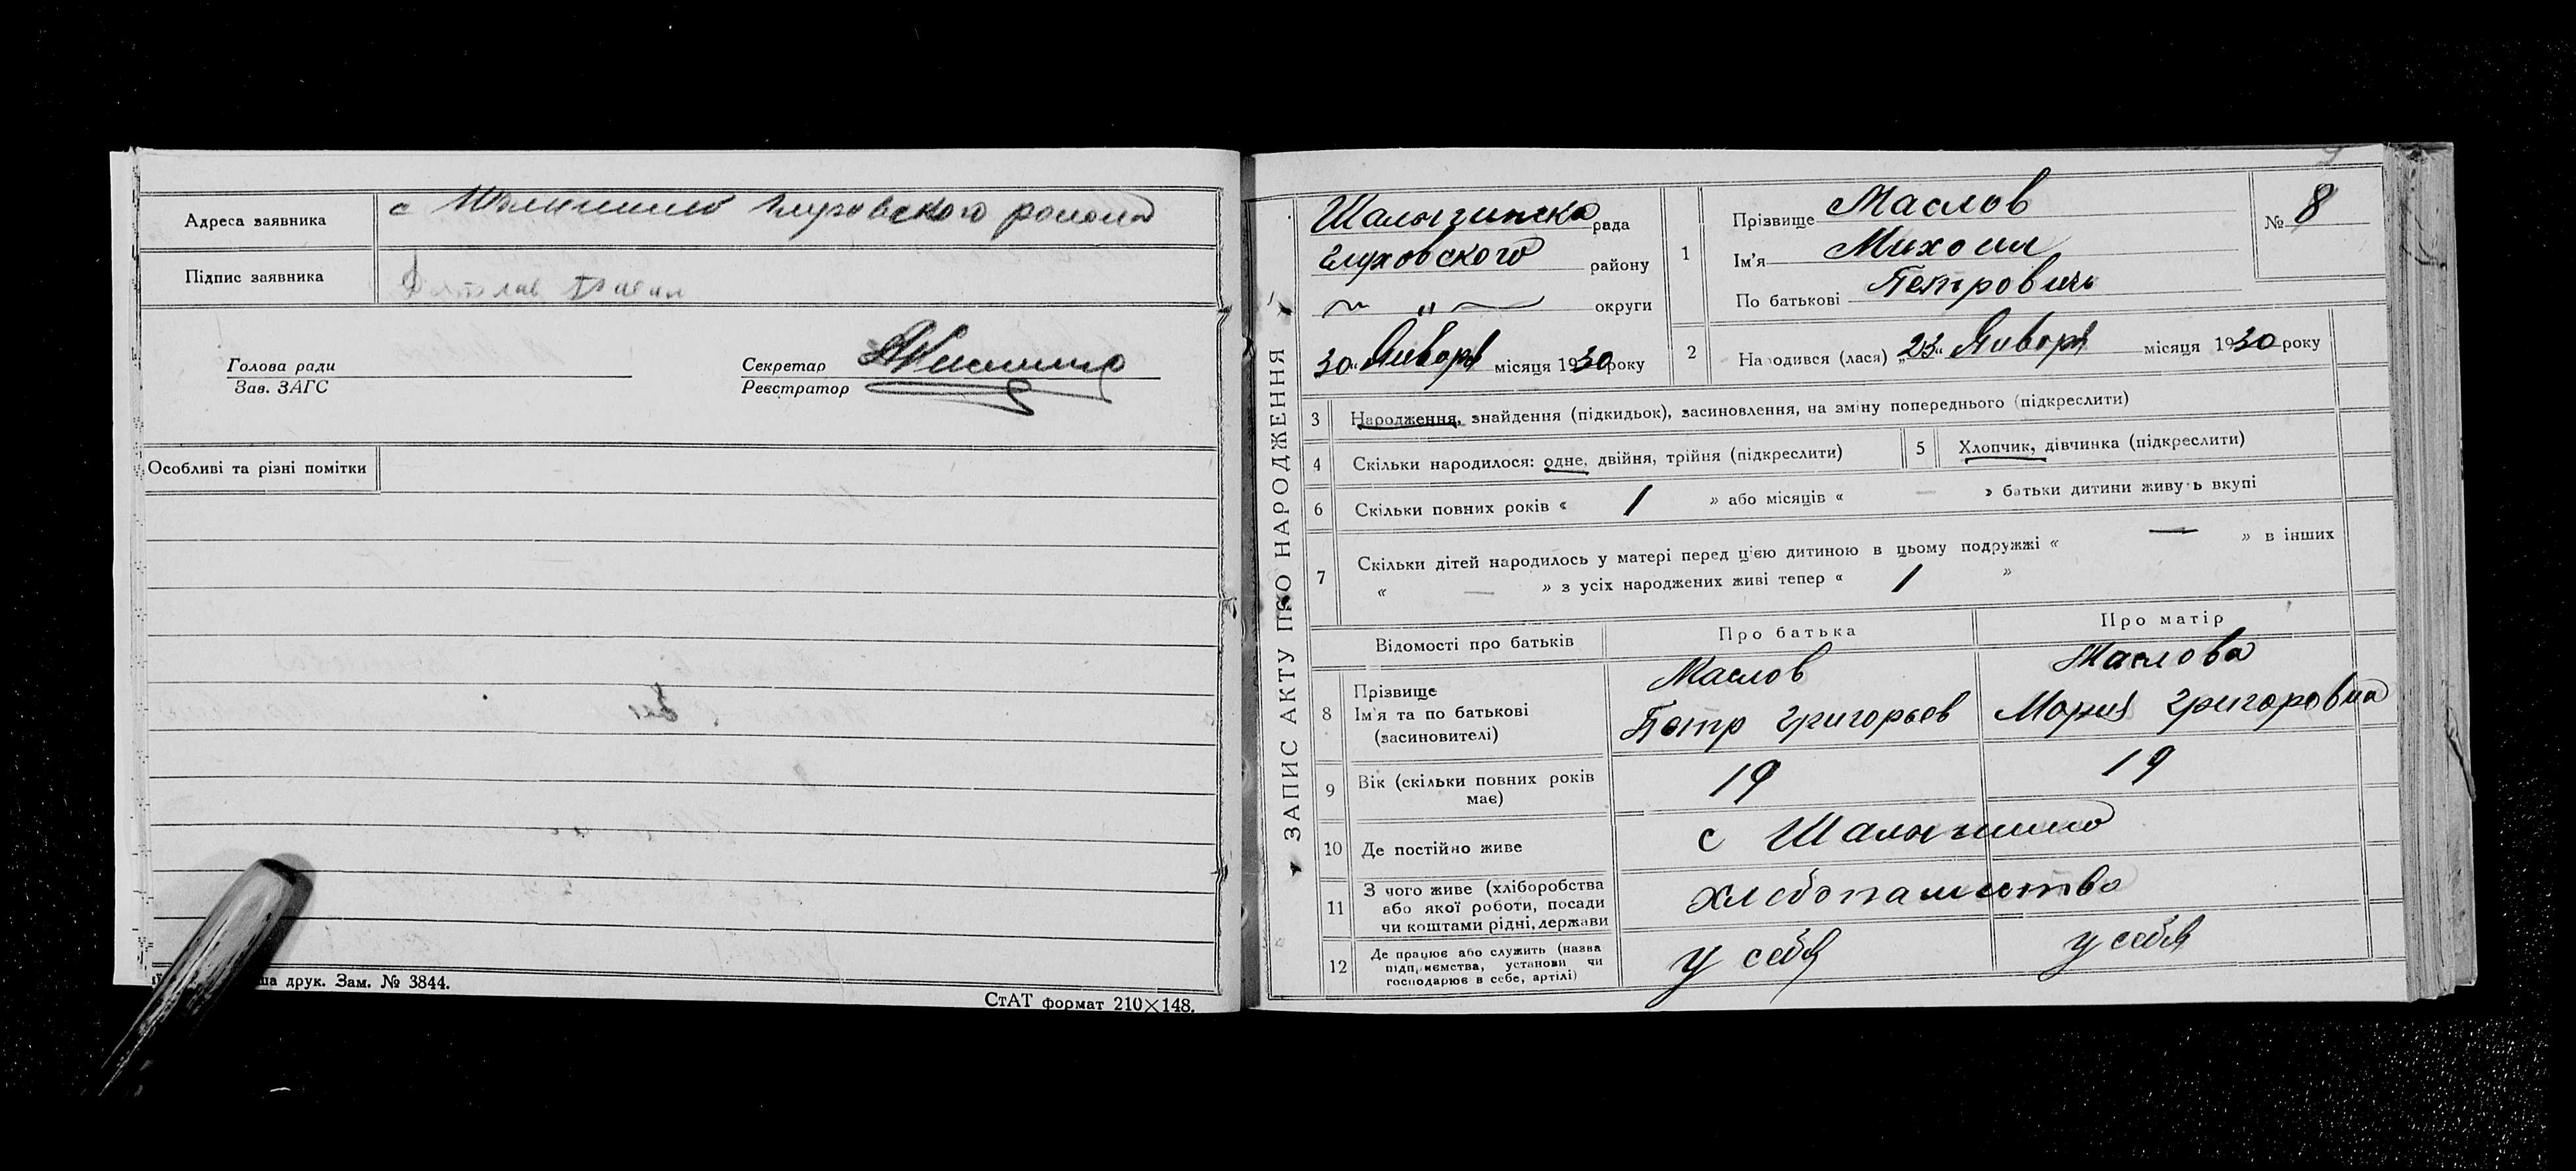 Адреса заявника с Шалигино Глуховского района
Підпис заявника
Голова ради
Зав. ЗАГС
Секретар
Реєстратор
Особливі та різні помітки
друк. Зам. № 3844.
СтАТ формат 210×148.
ЗАПИС АКТУ ПРО НАРОДЖЕННЯ
Шалыгинска рада
Глуховского району
— „ — округи
30 „ Января місяця 1930 року
1 Прізвище Маслов
Ім'я Михаил
По батькові Петрович
№ 8
2 Народився (лася) „23„ Января місяця 1930 року
3 Народження, знайдення (підкидьок), засиновлення, на зміну попереднього (підкреслити)
4 Скільки народилося: одне, двійня, трійня (підкреслити) 5 Хлопчик, дівчинка (підкреслити)
6 Скільки повних років « 1 » або місяців « — » батьки дитини живуть вкупі
7 Скільки дітей народилось у матері перед цією дитиною в цьому подружжі « — » в інших
« — » з усіх народжених живі тепер « 1 »
Відомості про батьків Про батька Про матір
8 Прізвище Маслов Маслова
Ім'я та по батькові Петр Григорьев Мария Григоровна
(засиновителі)
9 Вік (скільки повних років 19 19
має)
10 Де постійно живе с Шалыгино
11 З чого живе (хліборобства хлебопашество
або якої роботи, посади
чи коштами рідні, держави
12 Де працює або служить (назва у себя у себя
підприємства, установи чи
господарює в себе, артілі)